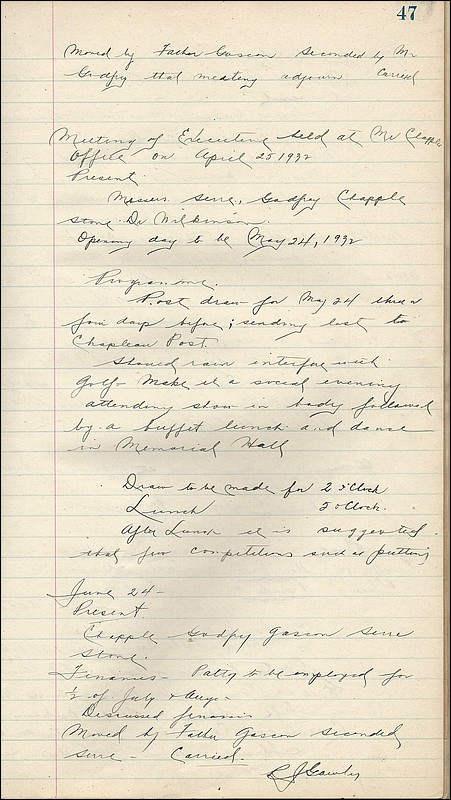 47
Moved by Father Gascon seconded by Mr
Godfry that meeting adjourn Carried
Meeting of Executive held at Mr Chapple
Office on April 25 1932
Present
Messers. Serre, Godfry Chapple
Stone. Dr Wilkinson.
Opening day to be May 24, 1932
Programme.
Post draw for May 24 three or
four days before; sending list to
Chapleau Post.
Should rain interfere with
Golf Make it a social evening
attending show in body followed
by a buffet lunch and dance
in Memorial Hall
Draw to be made for 2 o'Clock
Lunch 5 o'Clock.
After Lunch it is suggested
that few competitions such as putting
June 24 -
Present.
Chapple Godfry Gascon Serre
Stone.
Finances - Patty to be employed for
1/2 of July & Aug. -
Discussed finances
Moved by Father Gascon seconded
Serre - Carried.